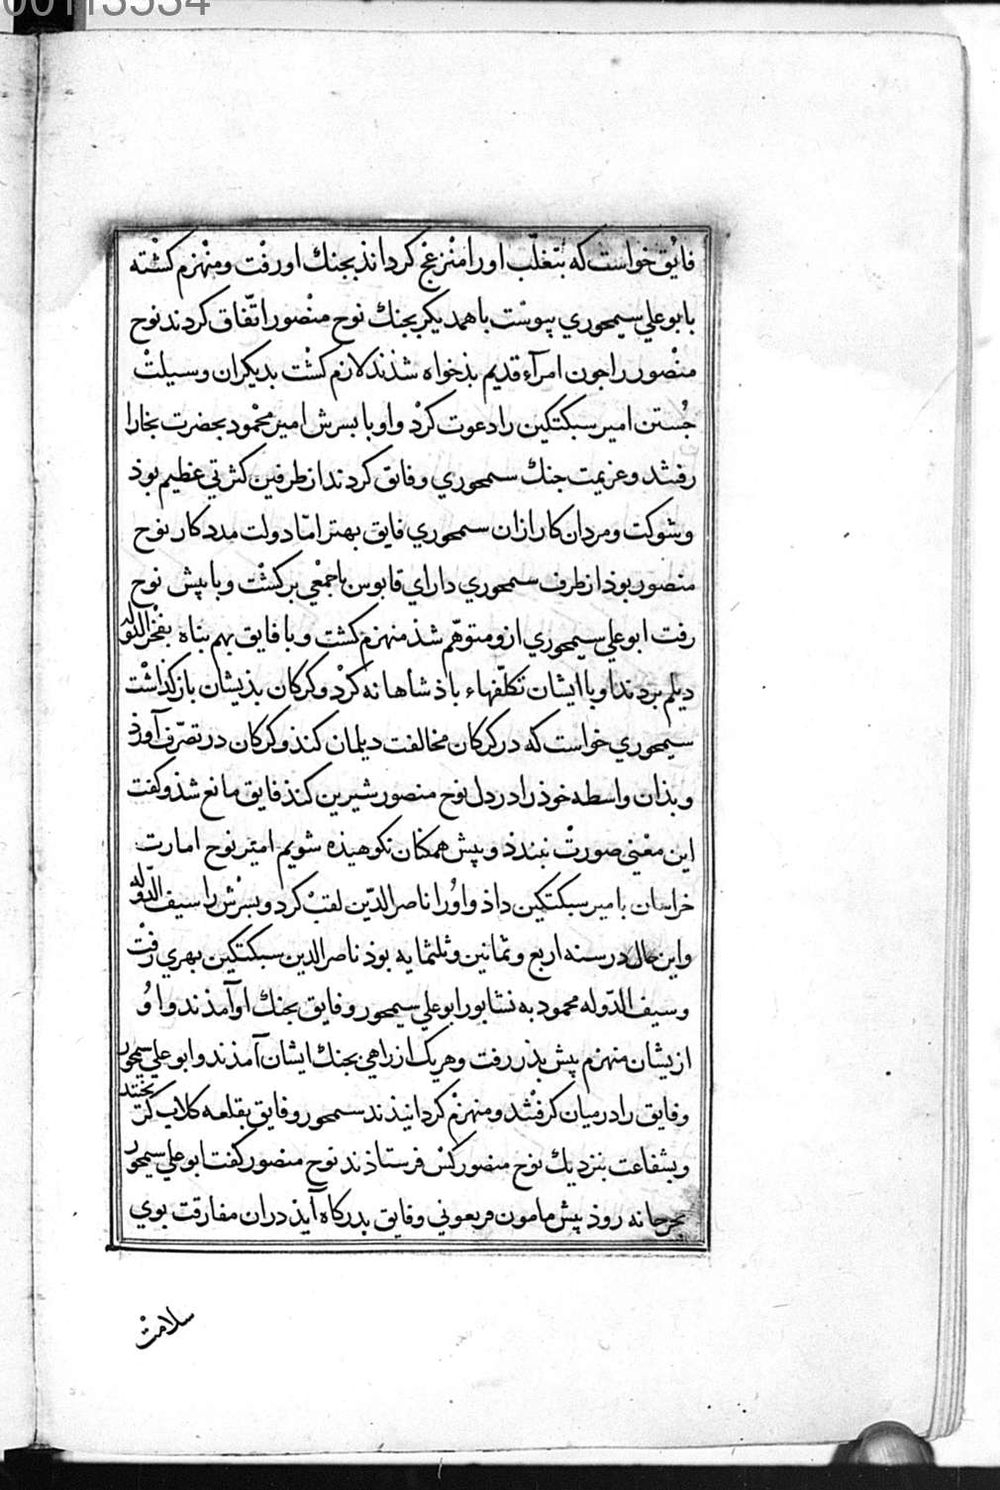 00113534
فایق خواست که بتغلّب او را منزعج کرداند بجنك او رفت و منهزم کشته
بابو علي سیمجوري پیوست با همدیکر بجنك نوح منصور اتّفاق کردند نوح
منصور را جون امرآء قدیم بذخواه شذند لازم کشت بدیکران وسیلت
جُستن امیر سبکتکین را دعوت کرد و او با بسرش امیر محمود بحضرت بخارا
رفتند و عزیمت جنك سمجوري و فایق کردند از طرفین کثرتي عظیم بوذ
و شوکت و مردان کار از ان سمجوري فایق بهتر امّا دولت مددکار نوح
منصور بوذ از طرف سمجوري داراي قابوس با جمعي برکشت و با پیش نوح
رفت ابو علي سیمجوري ازو متوهّم شذ منهزم کشت و با فایق بهم بناه بفخر الدوله
دیلم بردند او با ایشان تکلّفهاء باذشاهانه کرد و کرکان بذیشان بازکذاشت
سیمجوري خواست که در کرکان مخالفت دیلمان کند و کرکان در تصرّف آورد
و بذان واسطه خوذ را در دل نوح منصور شیرین کند فایق مانع شذ و کفت
این معنی صورت نبندذ و پیش همکان نکوهیذه شویم امیر نوح امارت
خراسان بامیر سبکتکین داذ و اورا ناصر الدّین لقب کرد و بسرش را سیف الدّوله
و این حال در سنه اربع و ثمانین و ثلثمایه بوذ ناصر الدین سبکتکین بهري رفت
و سیف الدّوله محمود به نشابور ابو علي سیمجور و فایق بجنك او آمذند و او
ازیشان منهزم پیش بذر رفت و هریک از راهي بجنك ایشان آمذند و ابو علي سیمجور
و فایق را در میان کرفتند و منهزم کردانیذند سمجور و فایق بقلعه کلاب کریختند
و بشفاعت بنزدیك نوح منصور کس فرستاذند نوح منصور کفت ابو علي سیمجور
بجرجانه روذ پیش مامون فریغوني و فایق بدرکاه آیذ در ان مفارقت بوي
سلامت